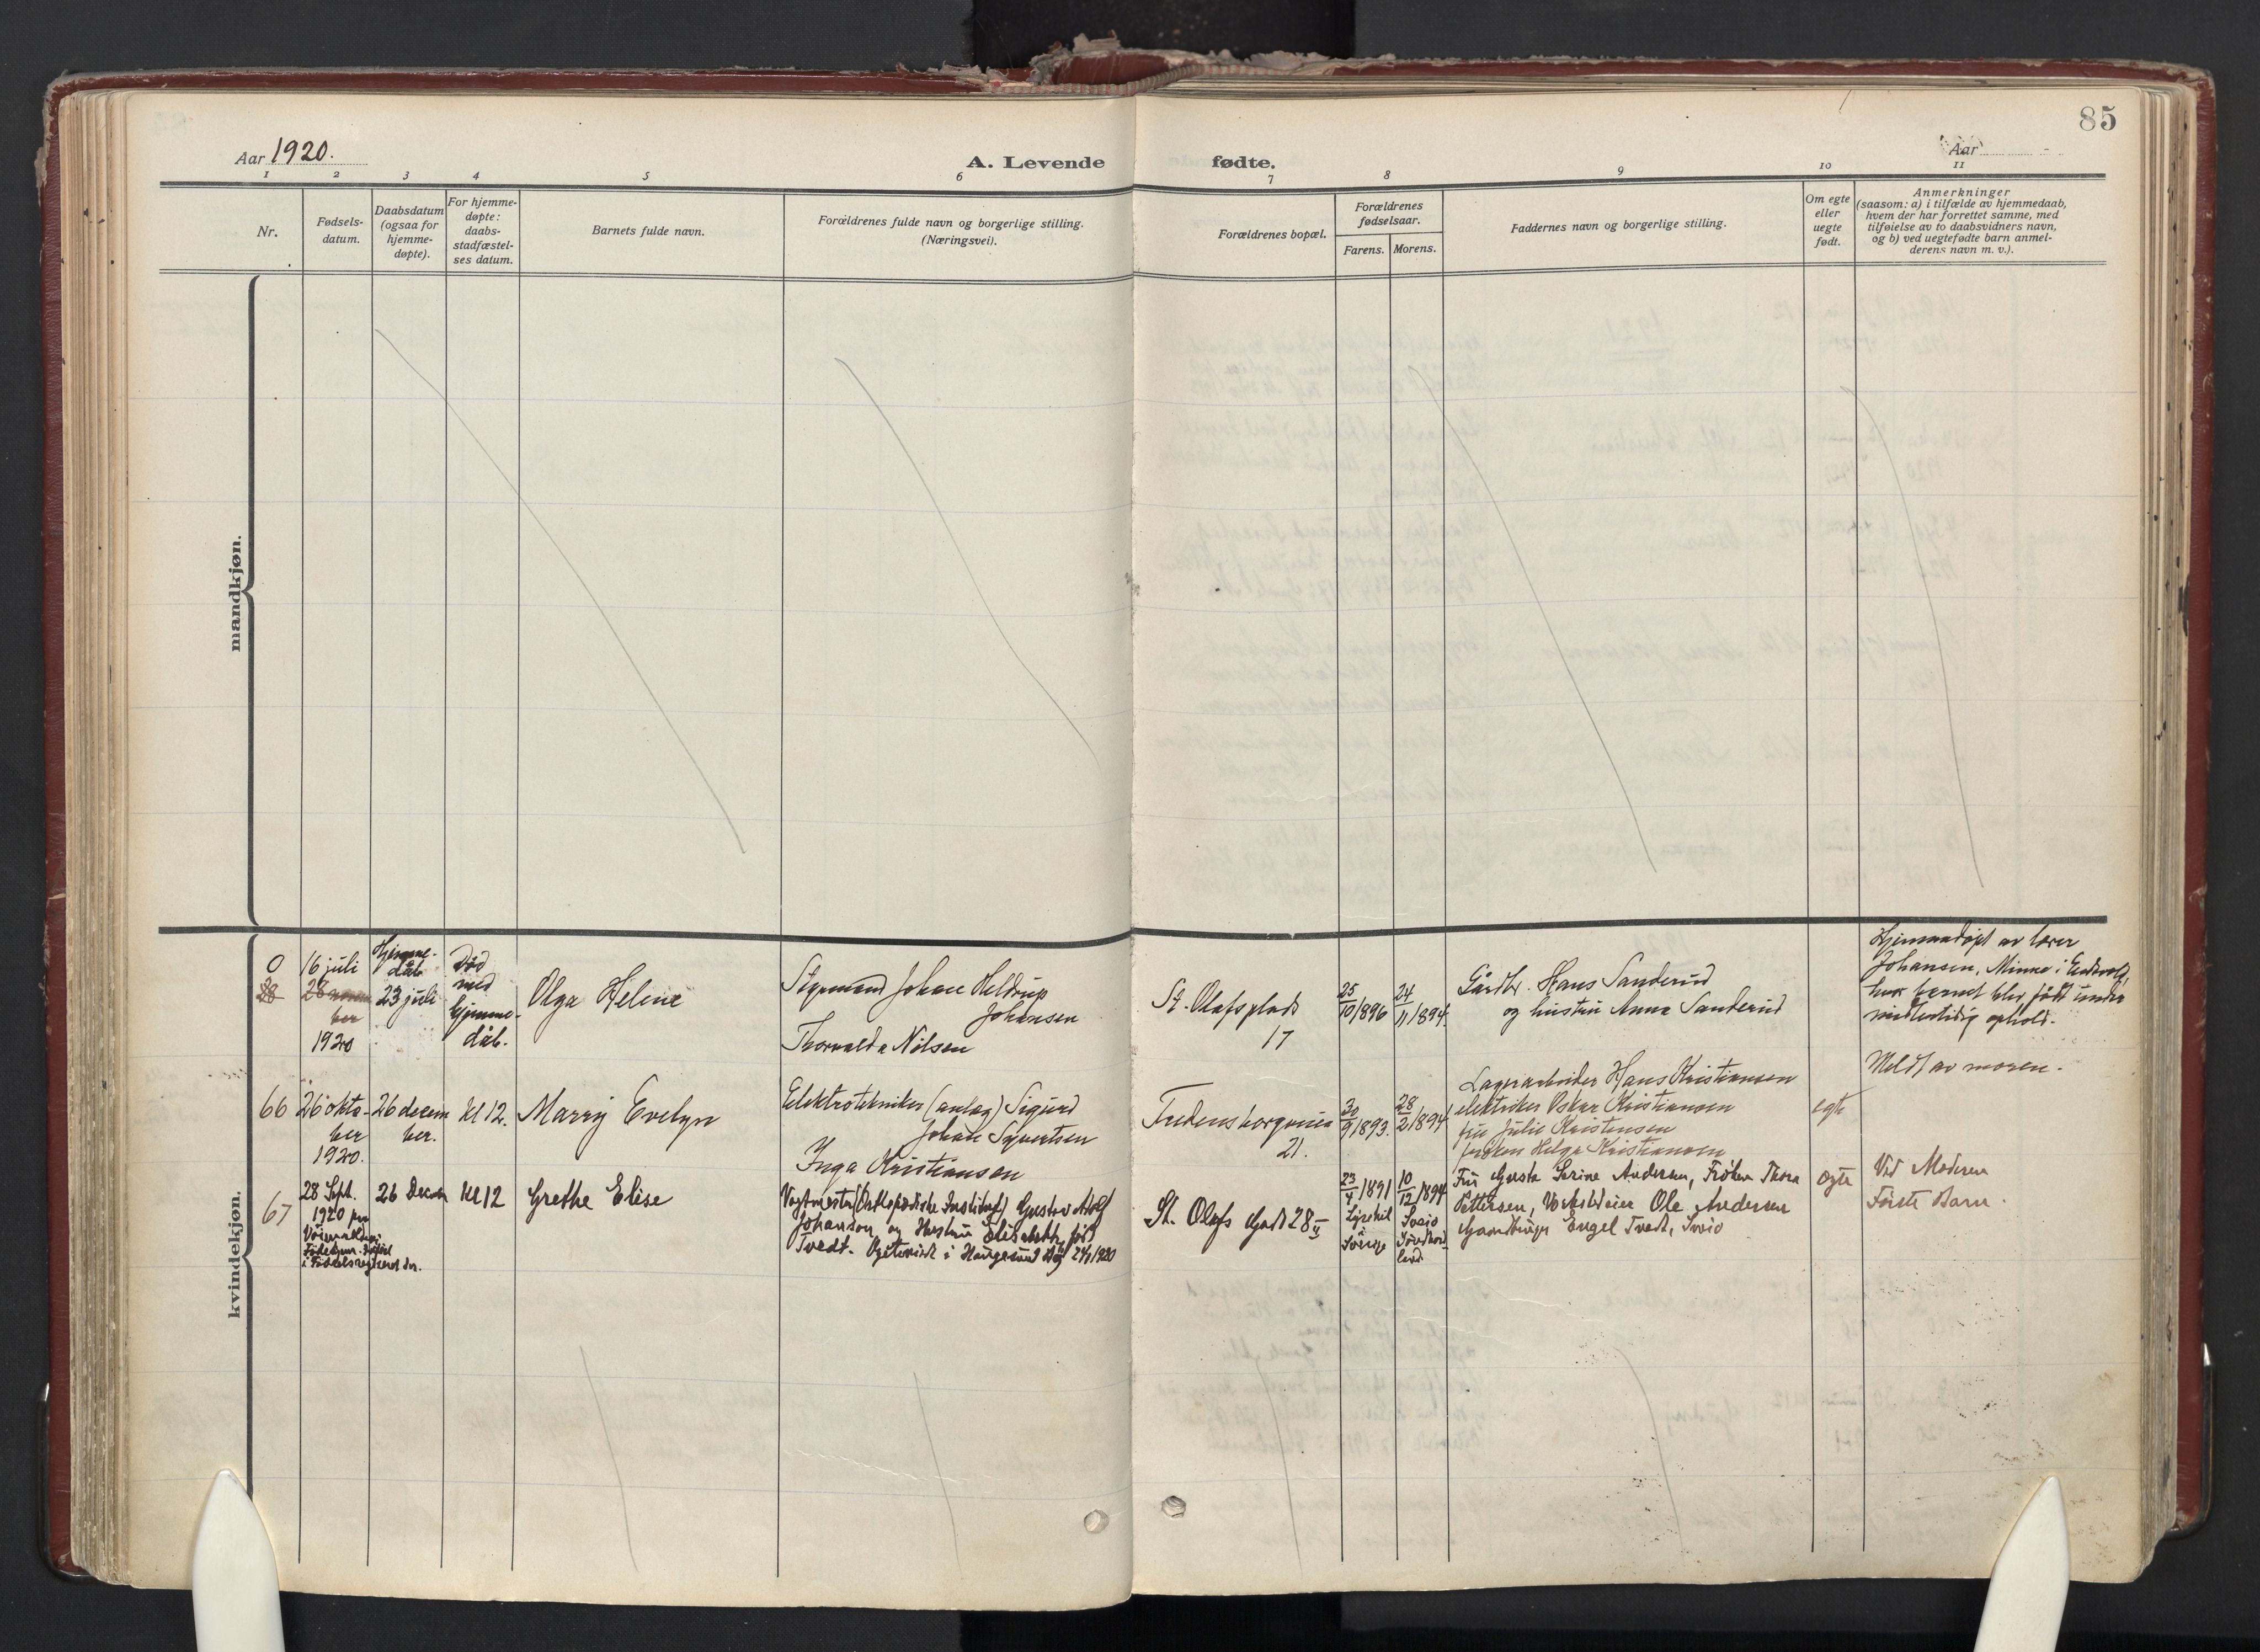 85
Aar 1920.
A. Levende fødte.
Aar
1 2 3 4 5 6 7 8 9 10 11
Nr.
Fødsels-
datum.
Daabsdatum
(ogsaa for
hjemme-
døpte).
For hjemme-
døpte:
daabs-
stadfæstel-
ses datum.
Barnets fulde navn.
Forældrenes fulde navn og borgerlige stilling.
(Næringsvei).
Forældrenes bopæl.
Forældrenes
fødselsaar.
Farens. Morens.
Faddernes navn og borgerlige stilling.
Om egte
eller
uegte
født.
Anmerkninger
(saasom: a) i tilfælde av hjemmedaab,
hvem der har forrettet samme, med
tilføielse av to daabsvidners navn,
og b) ved uegtefødte barn anmel-
derens navn m. v.).
mandkjøn.
kvindekjøn.
0
28
16 juli
1920
Hjemme-
dåb
23 juli
Død
med
hjemme-
dåb.
Olga Helene
Styrmand Johan Heldrup
Johansen
Thorvalda Nilsen
St. Olafsplads
17
25
10/1896
24
11/1894.
Gårdbr. Hans Sanderud
og hustru Anna Sanderud
Hjemmedøpt av lærer
Johansen, Minne i Eidsvold,
hvor barnet blev født under
midlertidig ophold.
Meldt av moren.
66
26 okto-
ber
1920.
26 decem
ber.
kl 12.
Marry Evelyn
Elektrotekniker (anlæg) Sigurd
Johan Syvertsen
Inga Kristiansen
Fredensborgveien
21.
30
9/1893.
28
2/1894
Lagerarbeider Hans Kristiansen
elektriker Oskar Kristiansen
fru Julie Kristensen
frøken Helga Kristiansen
egte
67
28 Sept.
1920
i Fødselsregisteret
26 Decem
Kl 12
Grethe Elise
Vagtmester (Orthopædiske Institut) Gustav Adolf
Johanson og Hustru Elisabeth, født
Tvedt. Egteviede i Haugesund 1920
St. Olafs Gade 28 II
23
4/1891
Lysekil
Sverige
10
12/1894
Sveio
Søndhord-
land
Fru Gusta Serine Andersen, Frøken Thora
Pettersen, Ole Andersen
Engel Tvedt, Sveio
egte
Ved Moderen
Første Barn.